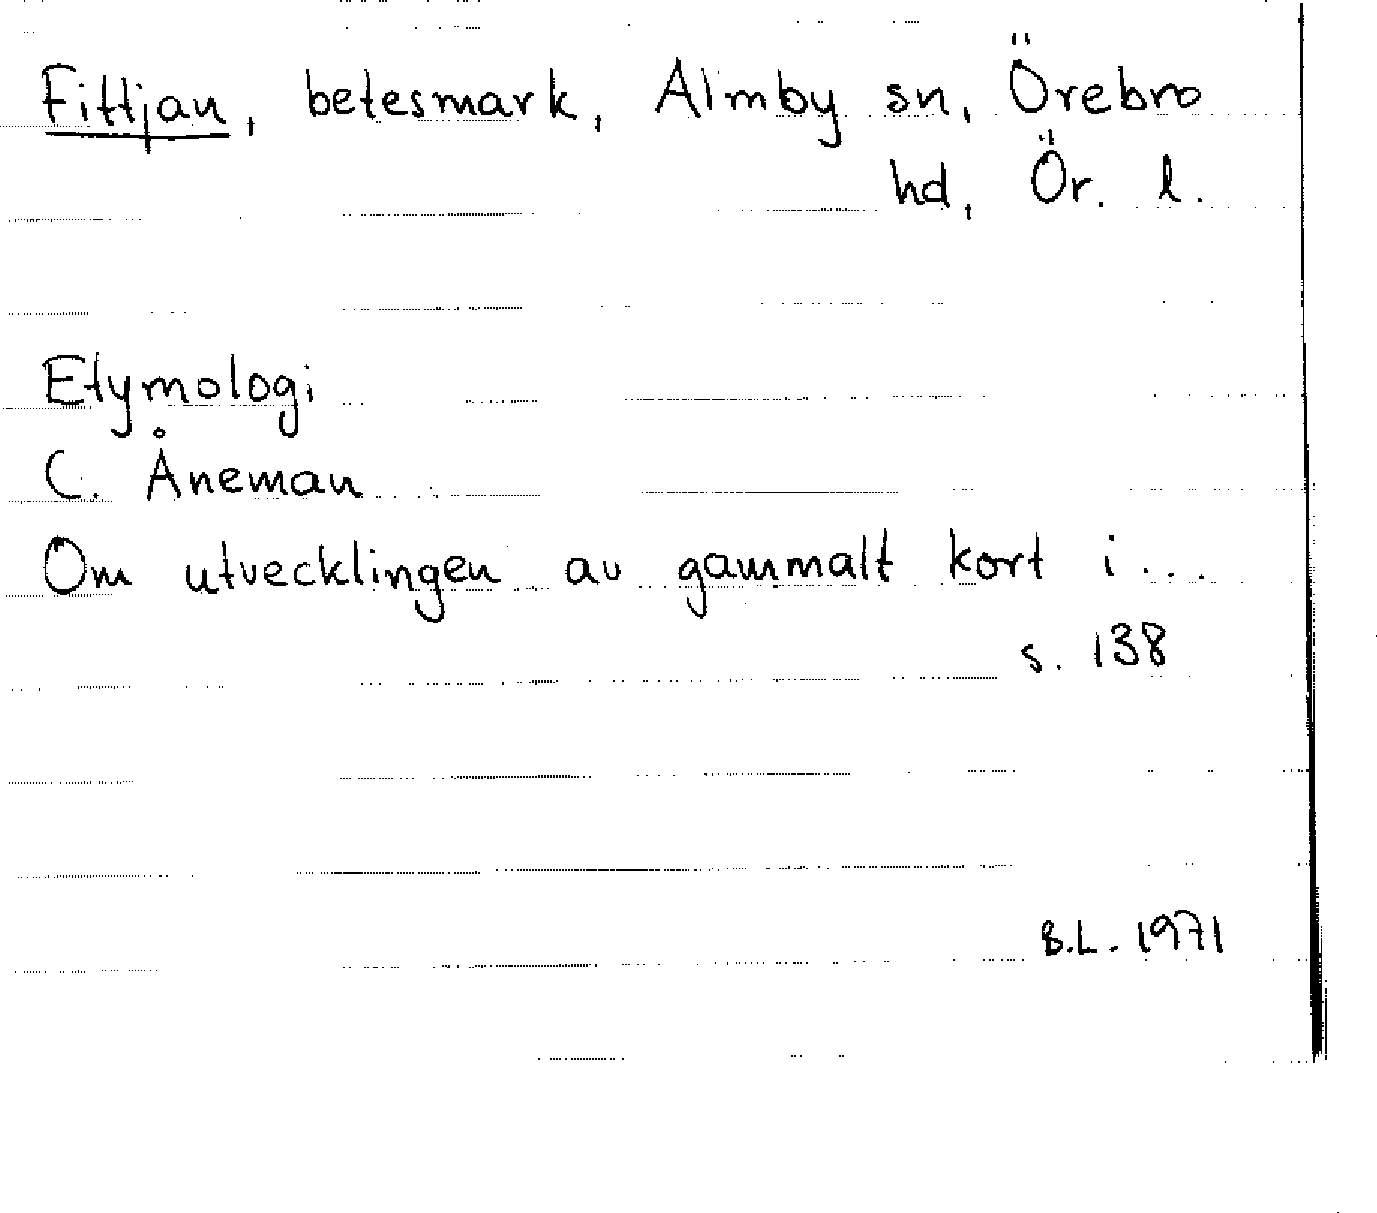 Fittjan, betesmark, Almby sn, Örebro
hd, Ör. l.
Etymologi
C. Åneman
Om utvecklingen av gammalt kort i...
s. 138
B.L. 1971